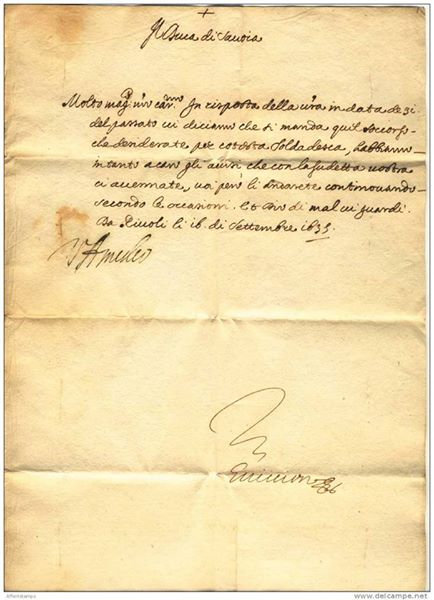 +
Il Duca di Savoia
Molto mag.co n'ro car.mo In risposta della v'ra in data de 31
del passato vi diciamo che si manda qui il soccorso
che
per cotesta soldadesca, habbiamo
intanto a caro gli avvisi che con la sudetta vostra
ci avvertate, voi però li andarete continovando
secondo le occasioni. Et Dio di mal vi guardi.
Da Rivoli li 16. di Settembre 1635
V Amedeo
delcampe.net